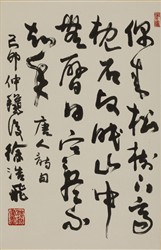 偶来松樹下高
枕石頭眠山中
無曆日寒盡不
知年 唐人詩句
己卯仲龝 徐浩飛